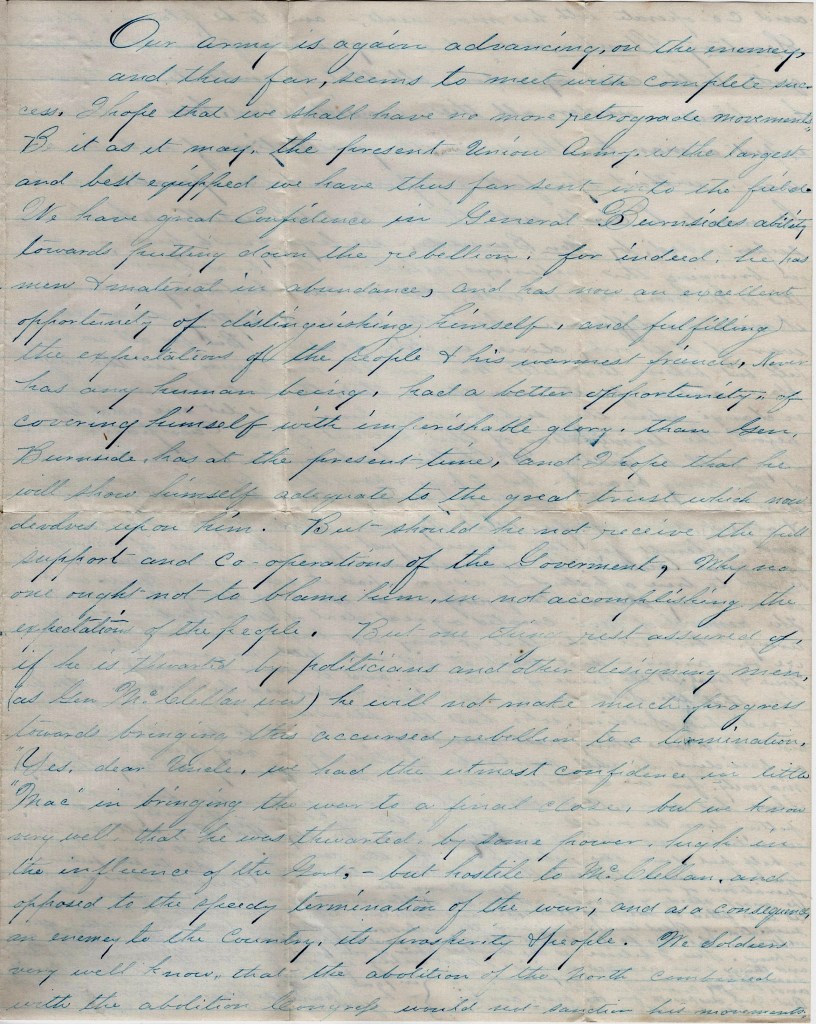 Our army is again advancing, on the enemy,
and thus far, seems to meet with complete suc-
cess. I hope that we shall have no more retrograde movements.
B it as it may. the present Union Army. is the largest
and best equipped we have thus far sent into the field.
We have great Confidence in General Burnsides ability
towards putting down the rebellion. for indeed. he has
men & material in abundance, and has now an excellent
opportunity of distinguishing himself, and fulfilling
the expectations of the people & his warmest friends. Never
has any human being, had a better opportunity, of
covering himself with imperishable glory. than Gen.
Burnside, has at the present time, and I hope that he
will show himself adequate to the great trust which now
devolves upon him. But should he not receive the full
support and co-operations of the Goverment, Why no
one ought not to blame him, in not accomplishing the
expectations of the people. But one thing rest assured of,
if he is thwarted by politicians and other designing men,
(as Gen McClellan was) he will not make much progress
towards bringing this accursed rebellion to a termination.
"Yes, dear Uncle, we had the utmost confidence in little
"Mac" in bringing the war to a final close, but we know
very well, that he was thwarted, by some power, high in
the influence of the Govt, - but hostile to McClellan, and
opposed to the speedy termination of the war; and as a consequence,
an enemy to the Country, its prosperity & people. We Soldiers
very well know, that the abolition of the North combined
with the abolition Congress would not sanction his movements,